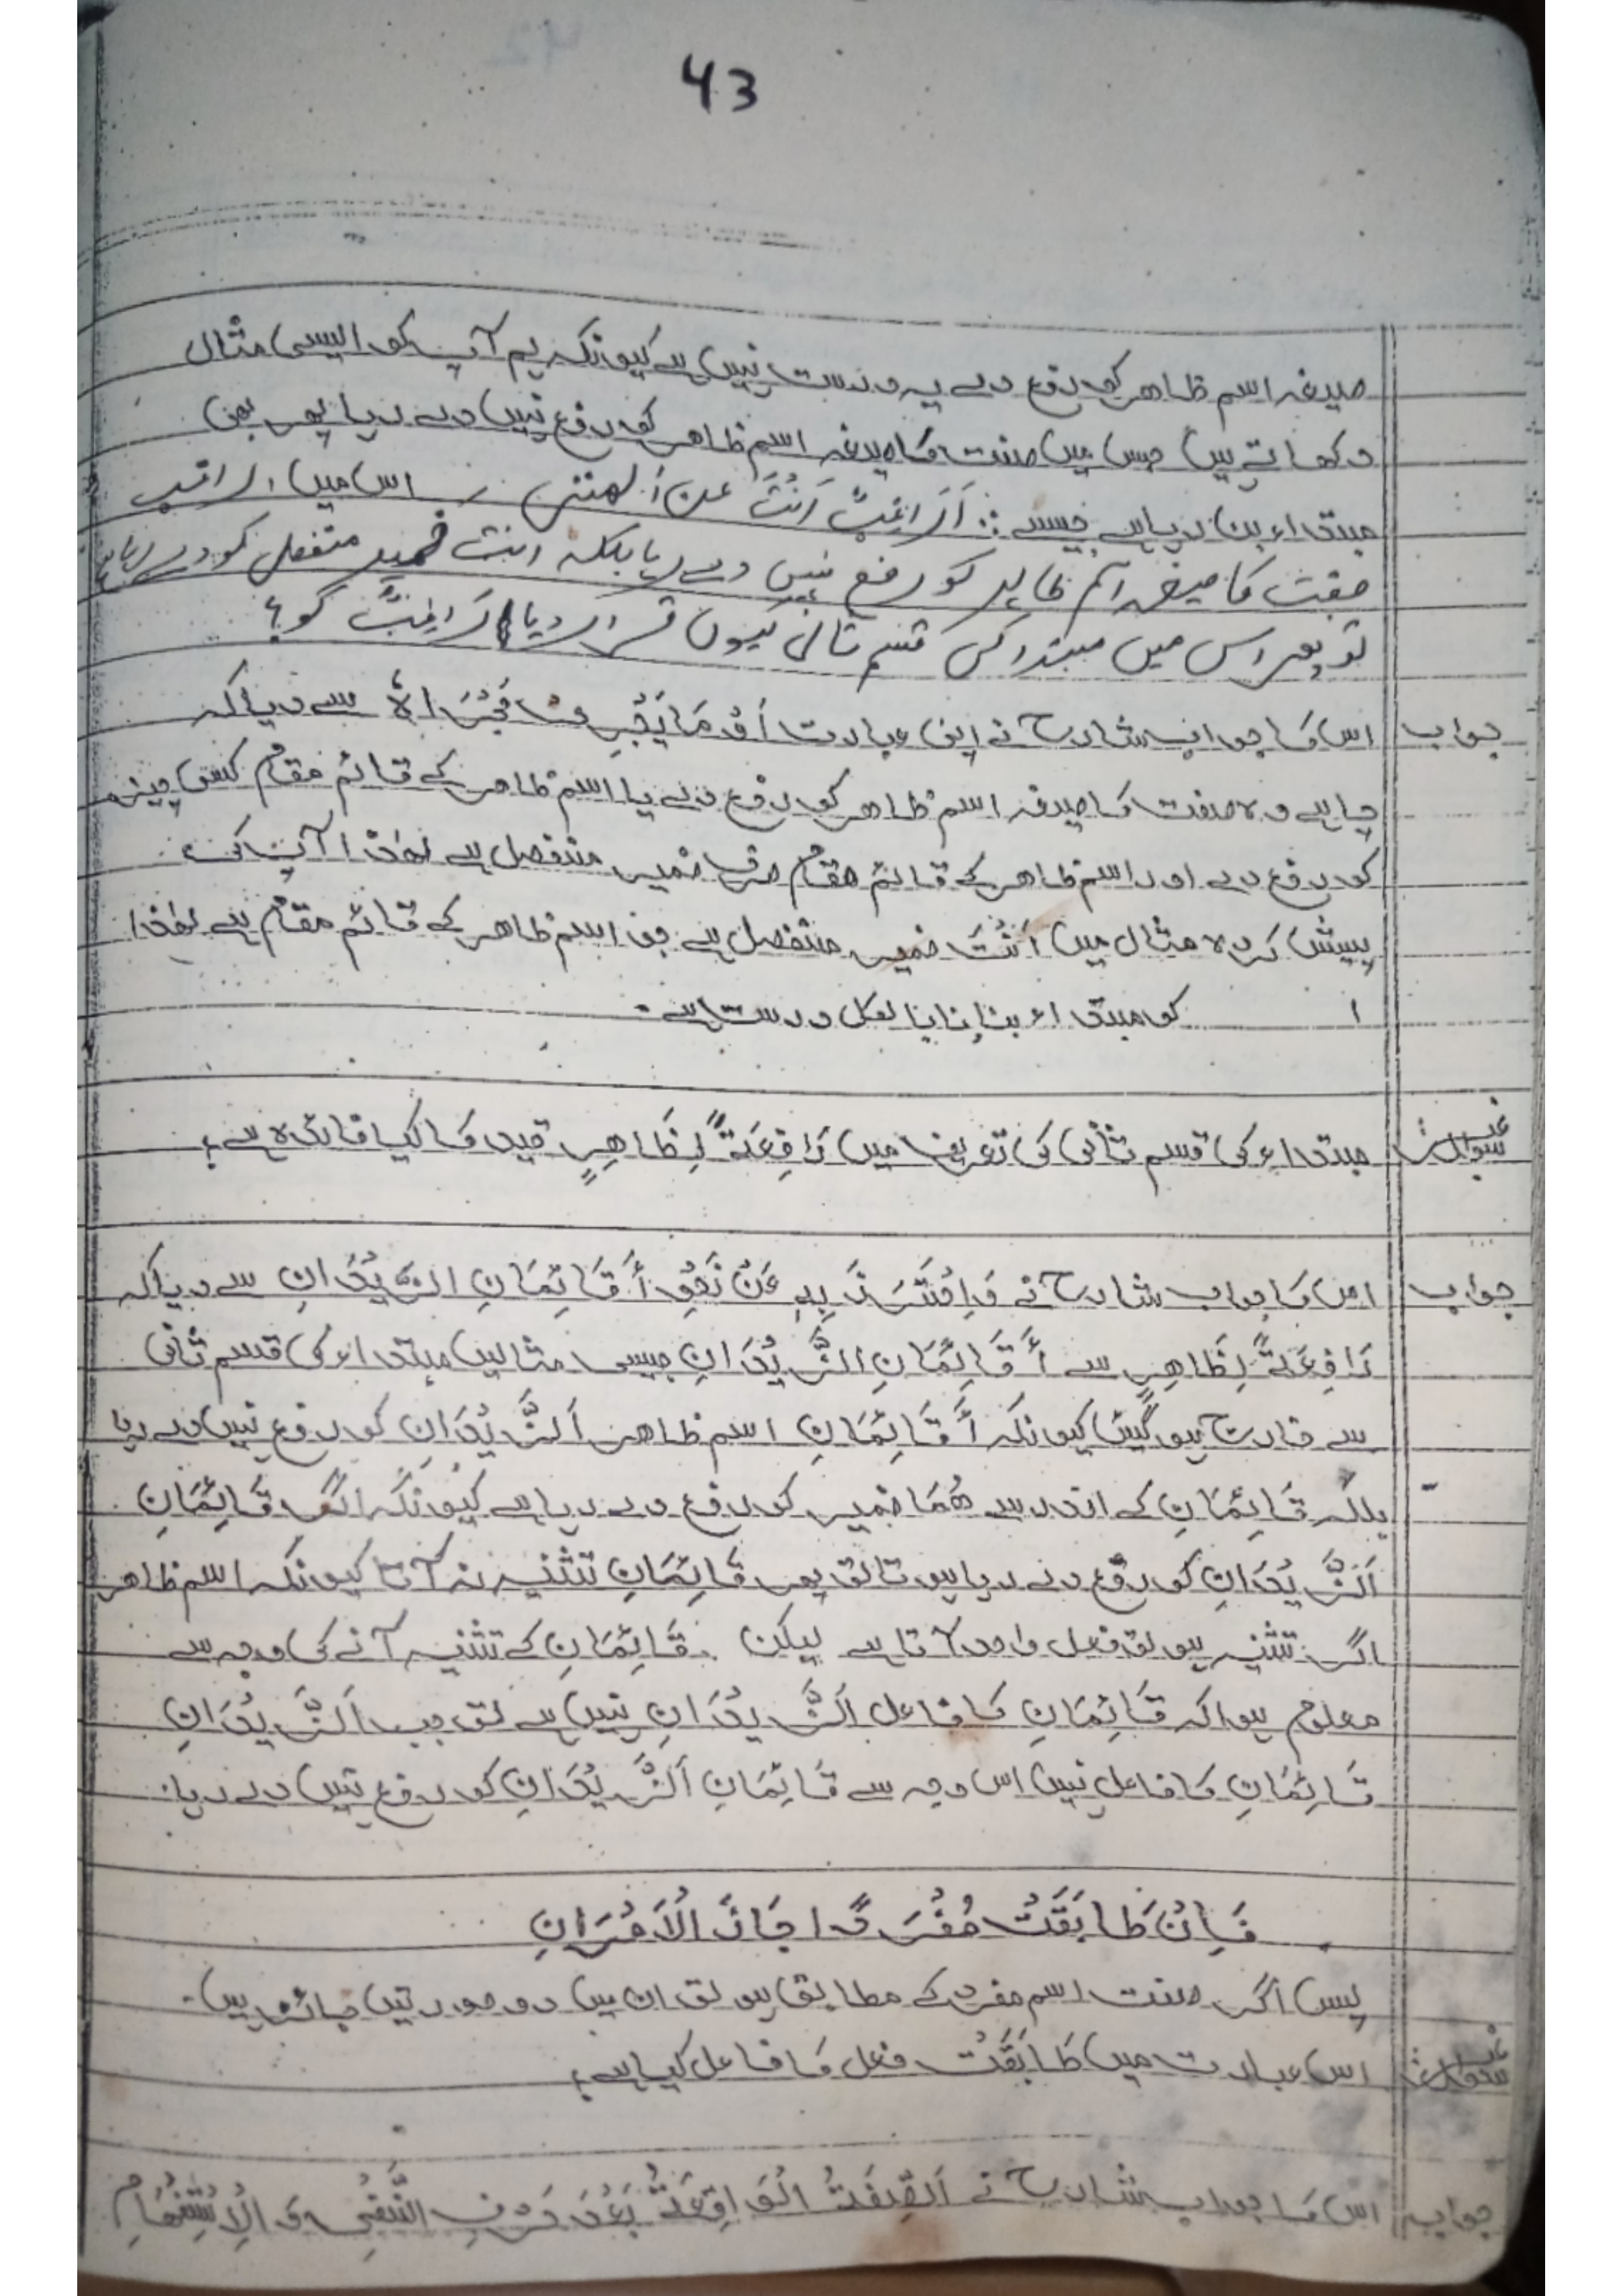 43
صیغہ اسم ظاھر کو رفع دے یہ درست نہیں ہے کیونکہ ہم آپ کو ایسی مثال
دکھاتے ہیں جس میں صفت کا صیغہ اسم ظاھر کو رفع نہیں دے رہا پھر بھی
مبتداء بن رہا ہے جیسے :: أَرَاغِبٌ اَنْتَ عن اٰلھتی اس میں اراغب
صفت کا صیغہ اسم ظاہر کو رفع نہیں دے رہا بلکہ انت ضمیر منفصل کو دے رہا ہے
تو پھر اس میں مبتدا کی قسم ثانی کیوں قرار دیا اَرَاغِبٌ کو؟
جواب اس کا جواب شارح نے اپنی عبارت اَوْ مَا یَجْرِی مَجْرَاہُ سے دیا کہ
چاہے وہ صفت کا صیغہ اسم ظاھر کو رفع دے یا اسم ظاھر کے قائم مقام کسی چیز
کو رفع دے اور اسم ظاھر کے قائم مقام صرف ضمیر منفصل ہے لھٰذا آپ کی
پیش کردہ مثال میں اَنْتَ ضمیر منفصل ہے جو اسم ظاھر کے قائم مقام ہے لھٰذا
ا کو مبتداء بنانا بالکل درست ہے۔
سوال مبتداء کی قسم ثانی کی تعریف میں رَافِعَةً لِظَاھِرٍ قید کا کیا فائدہ ہے؟
جواب اس کا جواب شارح نے وَاحْتَرَزَ بِهِ عَنْ نَحْوِ أَقَائِمَانِ الزَّیْدَانِ سے دیا کہ
رَافِعَةً لِظَاھِرٍ سے أَقَائِمَانِ الزَّیْدَانِ جیسی مثالیں مبتداء کی قسم ثانی
سے خارج ہو گئیں کیونکہ أَقَائِمَانِ اسم ظاھر اَلزَّیْدَانِ کو رفع نہیں دے رہا
بلکہ قَائِمَانِ کے اندر سے ھُمَا ضمیر کو رفع دے رہا ہے کیونکہ اگر قَائِمَانِ
اَلزَّیْدَانِ کو رفع دے رہا ہوتا تو پھر قَائِمَانِ تثنیہ نہ آتا کیونکہ اسم ظاھر
اگر تثنیہ ہو تو فعل واحد آتا ہے لیکن قَائِمَانِ کے تثنیہ آنے کی وجہ سے
معلوم ہوا کہ قَائِمَانِ کا فاعل اَلزَّیْدَانِ نہیں ہے تو جب اَلزَّیْدَانِ
قَائِمَانِ کا فاعل نہیں اس وجہ سے قَائِمَانِ اَلزَّیْدَانِ کو رفع نہیں دے رہا۔
فَاِنْ طَابَقَتْ مُفْرَدًا جَازَ الْاَمْرَانِ
پس اگر صفت اسم مفرد کے مطابق ہو تو ان میں دو صورتیں جائز ہیں۔
سوال اس عبارت میں طَابَقَتْ فعل کا فاعل کیا ہے؟
جواب اس کا جواب شارح نے اَلصِّفَةُ الْوَاقِعَةُ بَعْدَ حَرْفِ النَّفْیِ وَ الْاِسْتِفْهَامِ